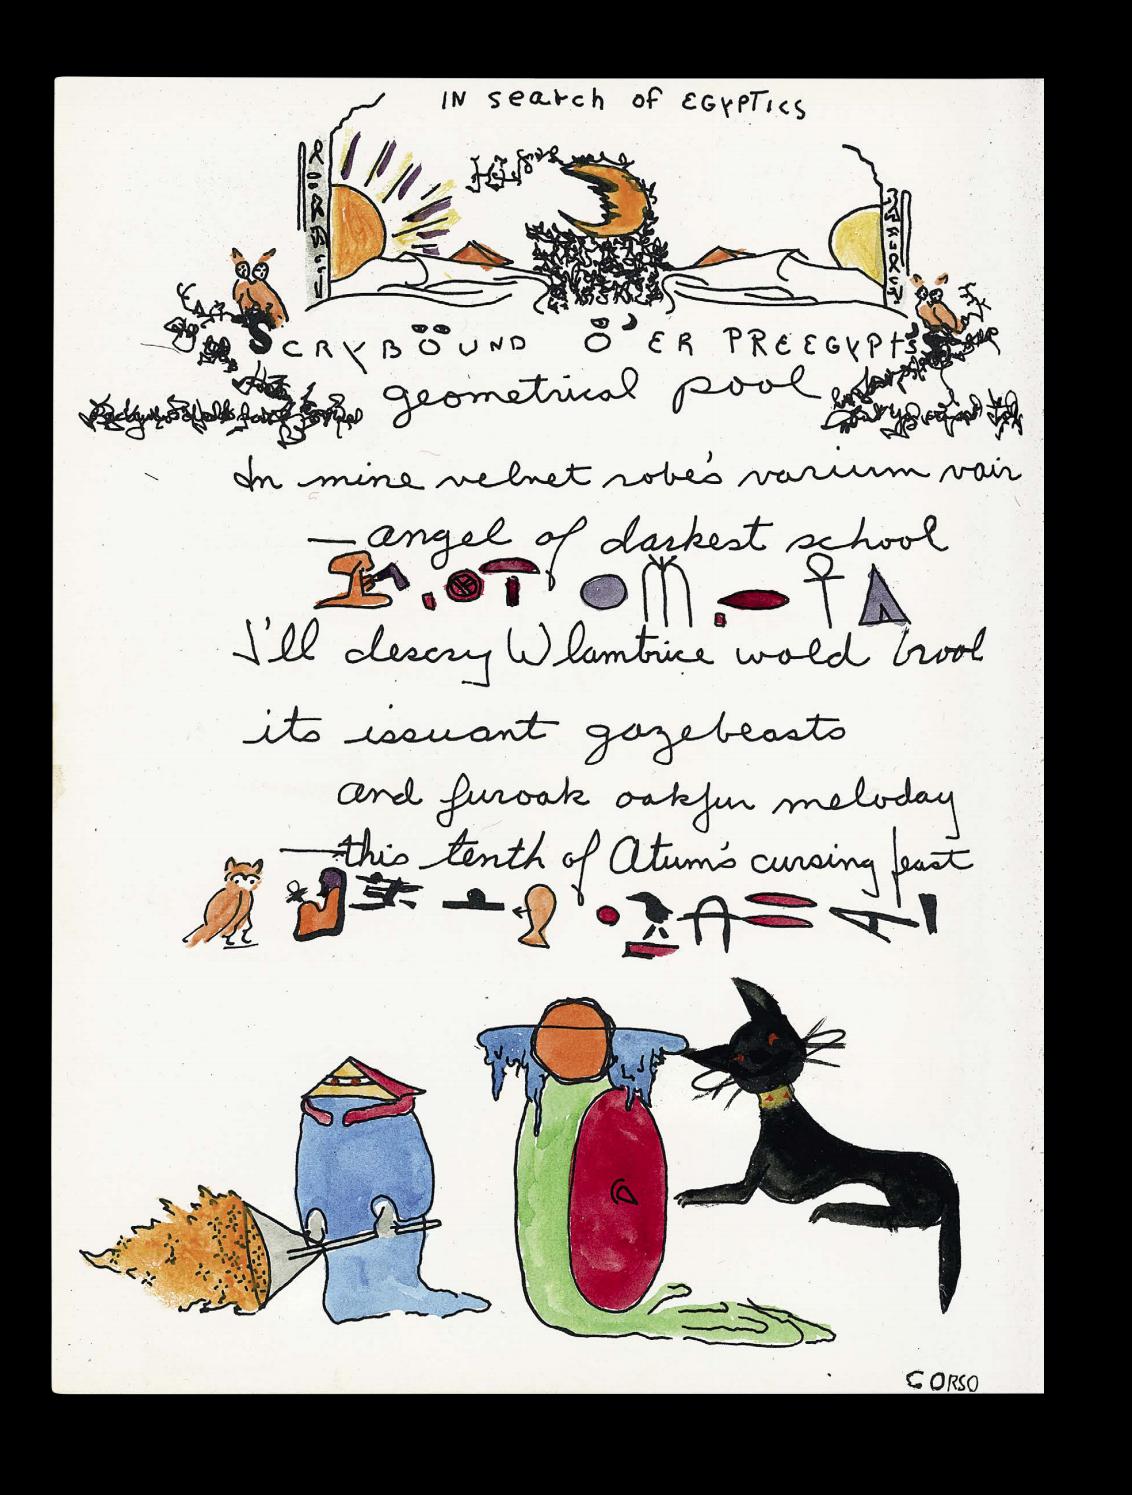 IN search of EGYPTICS
SCRYBÖUND Ö'ER PREEGYPT'S
geometrical pool
In mine velnet robe's varium vair
—angel of darkest school
I'll descry Wlambrice wold brool
its issuant gazebeasts
and furoak oakfur meloday
—this tenth of Atum's cursing feast
CORSO